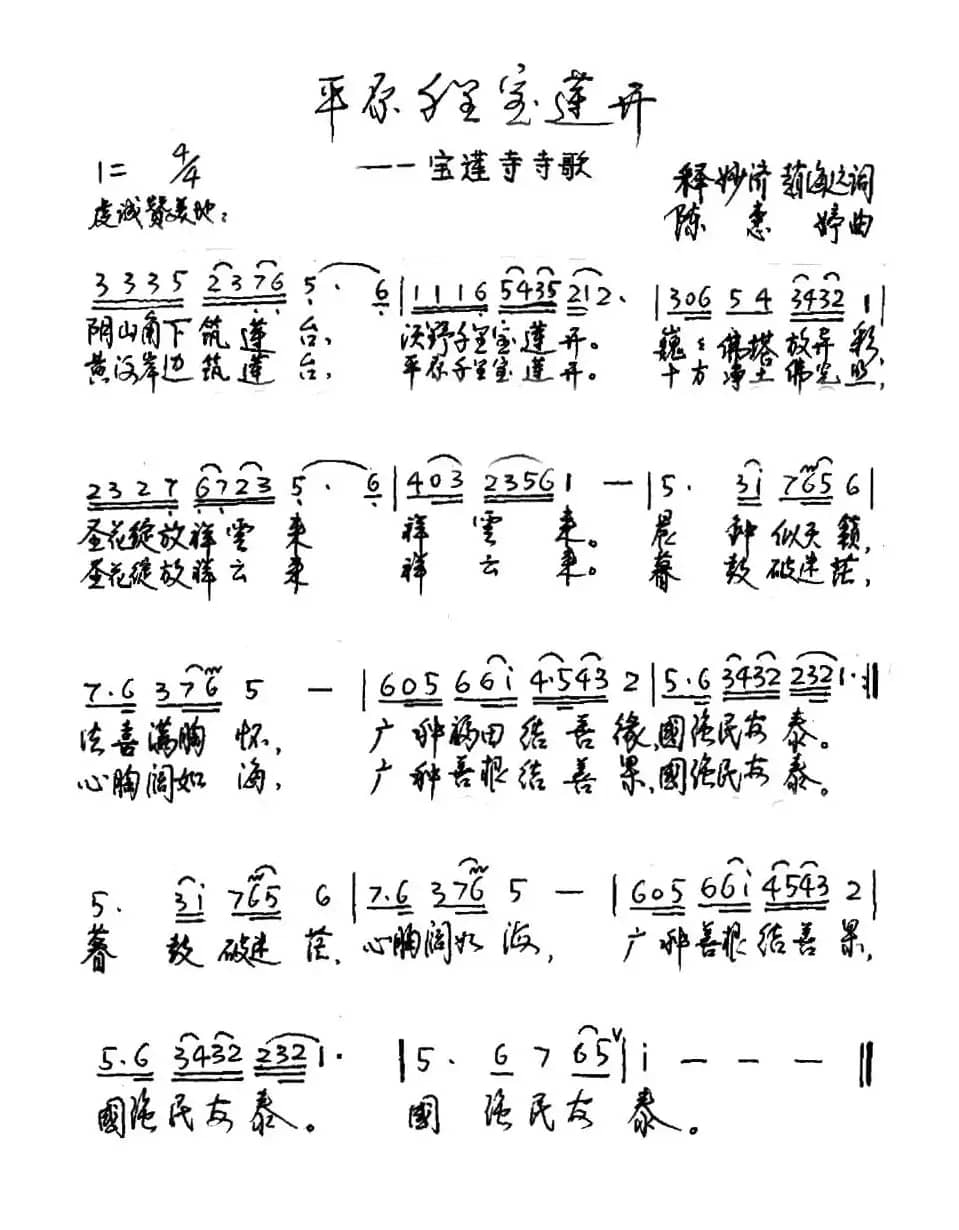 平原千里宝莲开
1= 4/4
———宝莲寺寺歌
释妙济 赵海远词
虔诚赞美地：
陈惠婷曲
3 3 3 5 2 3 7 6 5 · 6 | 1 1 1 6 5 4 3 5 2 1 2 · | 3 0 6 5 4 3 4 3 2 1 |
阴山角下筑莲台， 沃野千里宝莲开。 巍〻佛塔放异彩，
黄河岸边筑莲台， 平原千里宝莲开。 十方净土佛光照，
2 3 2 7 6 7 2 3 5 · 6 | 4 0 3 2 3 5 6 1 — | 5 · 3 i 7 6 5 6 |
圣花绽放祥雲来 祥雲来。 晨钟似天籁，
圣花绽放祥云来 祥云来。 暮鼓破迷茫，
7 · 6 3 7 6 5 — | 6 0 5 6 6 i 4 · 5 4 3 2 | 5 · 6 3 4 3 2 2 3 2 1 · :||
法喜满胸怀， 广种福田结善缘，國强民安泰。
心胸阔如海， 广种善根结善果，國强民安泰。
5 · 3 i 7 6 5 6 | 7 · 6 3 7 6 5 — | 6 0 5 6 6 i 4 5 4 3 2 |
暮鼓破迷茫，心胸阔如海， 广种善根结善果，
5 · 6 3 4 3 2 2 3 2 1 · | 5 · 6 7 6 5 V | i — — — ||
國强民安泰。 國强民安泰。